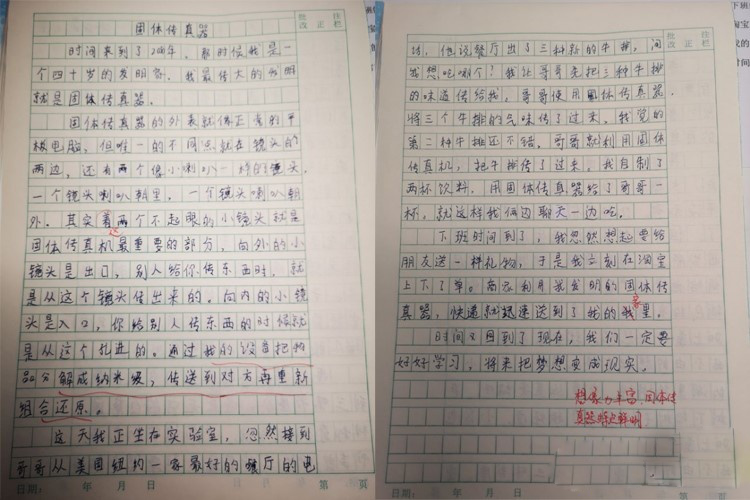 批改
注正栏
固体传真器
时间来到了20年。那时候我是一
个四十岁的发明家。我最伟大的发明
就是固体传真器。
固体传真器的外表就像正常的平
板电脑，但唯一的不同点就在镜头的
两边，还有两个像小喇叭一样的镜头，
一个镜头喇叭朝里，一个镜头喇叭朝
外。其实着两个不起眼的小镜头就是
这
固体传真机最重要的部分，向外的小
镜头是出口，别人给你传东西时，就
是从这个镜头传出来的。向内的小镜
头是入口，你给别人传东西的时候就
是从这个扎进的。通过我的设备把物
品分解成纳米级，传送到对方再重新
组合还原。
这天我正坐在实验室，忽然接到
哥哥从美国纽约一家最好的餐厅的电
日期： 年 月 日 第 页
批改
注正栏
话，他说餐厅出了三种新的牛排，问
我想吃哪个？我让哥哥先把三种牛排
的味道传给我，哥哥使用固体传真器
将三个牛排的气味传了过来，我觉的
第二种牛排还不错，哥哥就利用固体
传真机，把牛排传了过来，我自制了
两杯饮料，用固体传真器给了哥哥一
杯，就这样我俩边聊天一边吃。
下班时间到了，我忽然想起要给
朋友送一样礼物，于是我立刻在淘宝
上下了单。商家利用我发明的固体传
真器，快递就迅速送到了我的家里。
家
时间又回到了现在，我们一定要
好好学习，将来把梦想变成现实。
想像力丰富，固体传
真器特点鲜明
日期： 年 月 日 第 页
下班
淘宝
的
时间